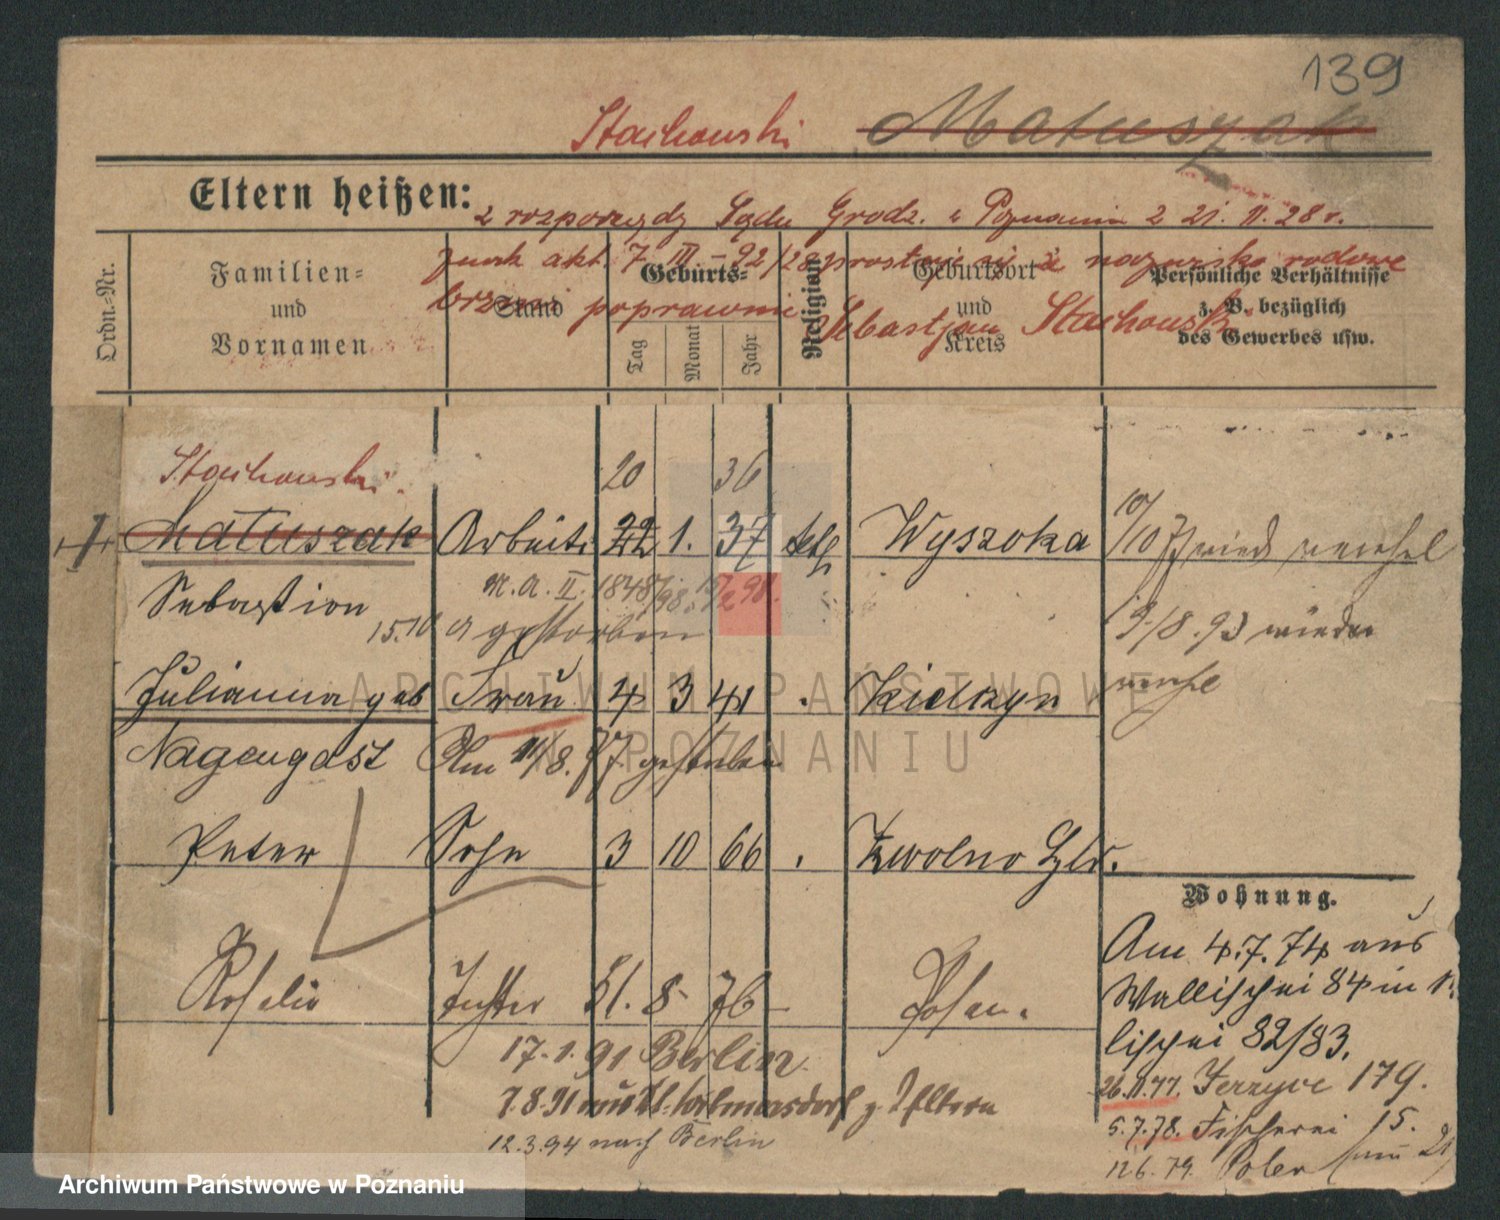 139
Stachowski Matuszak
Eltern heißen:
z rozporządz Sądu Grodz. w Poznaniu z 21. 11. 28 r.
znak akt. 7 III - 92/28 prostuje się że nazwisko rodowe
brzmi poprawnie Sebastjan Stachowski
Ordn.-Nr.
Familien- und Vornamen
Stand
Geburts-
Tag
Monat
Jahr
Religion
Geburtsort und Kreis
Persönliche Verhältnisse
z. B. bezüglich
des Gewerbes usw.
Stachowski. 20 36
Matuszak Arbeiter 22 1. 37 kth Wyszoka 10/10
Sebastion
15.10 gestorben
19/8.93 wieder
Julianna geb Frau 4 3 41 . Kiekzyn
Nagengast Am 11/8. 77 gestorben
Peter Sohn 3 10 66 . Zwolno
Wohnung.
Rosalie Tochter 21. 8 76 Posen.
Am 4.7.74 aus
Wallischei 84 in
lischei 82/83.
17.1.91 Berlin
26.11.77. Jerzyce 179.
7.8.91
5.7.78. Fischerei 15.
12.3.94 nach Berlin
12.6.79.
ARCHIWUM PAŃSTWOWE
W POZNANIU
Archiwum Państwowe w Poznaniu